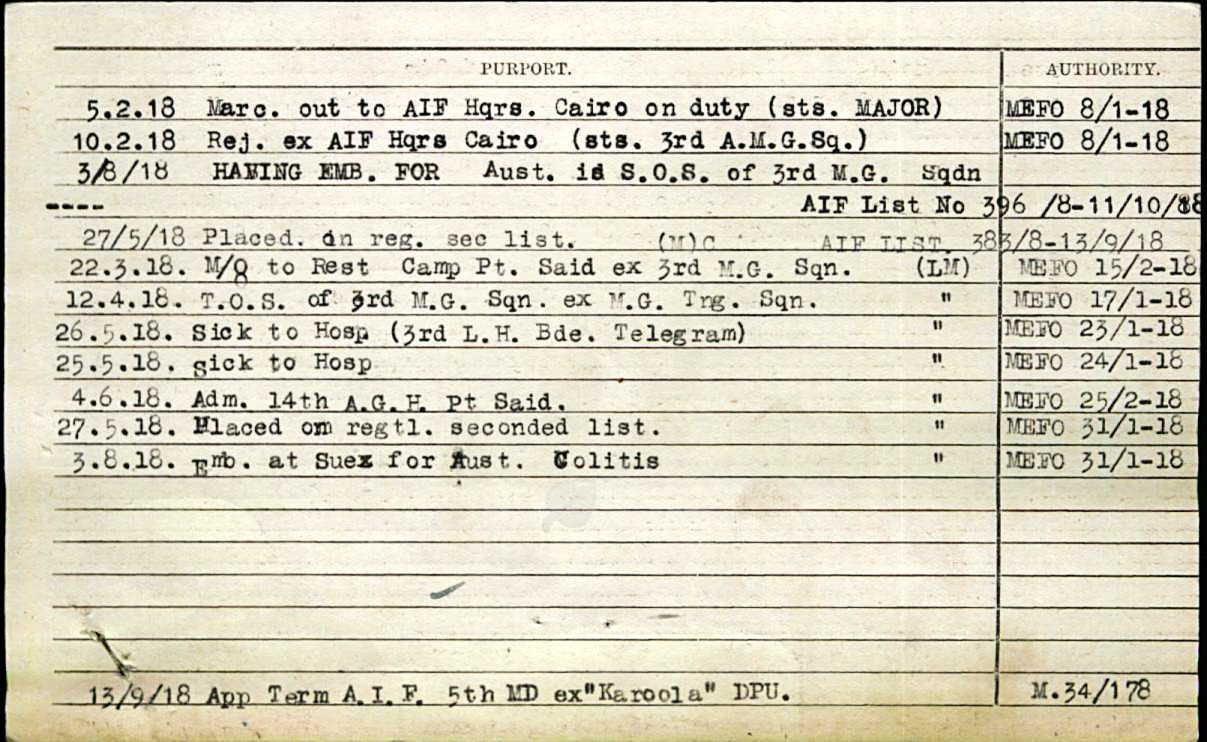 PURPORT. AUTHORITY.
5.2.18 Marc. out to AIF Hqrs. Cairo on duty (sts. MAJOR) MEFO 8/1-18
10.2.18 Rej. ex AIF Hqrs Cairo (sts. 3rd A.M.G.Sq.) MEFO 8/1-18
3/8/18 HAVING EMB. FOR Aust. is S.O.S. of 3rd M.G. Sqdn
---- AIF List No 396 /8-11/10/18
27/5/18 Placed. on reg. sec list. (M)C AIF LIST 383/8-13/9/18
22.3.18. M/O to Rest Camp Pt. Said ex 3rd M.G. Sqn. (LM) MEFO 15/2-18
12.4.18. T.O.S. of 3rd M.G. Sqn. ex M.G. Trg. Sqn. " MEFO 17/1-18
26.5.18. Sick to Hosp (3rd L.H. Bde. Telegram) " MEFO 23/1-18
25.5.18. sick to Hosp " MEFO 24/1-18
4.6.18. Adm. 14th A.G.H. Pt Said. " MEFO 25/2-18
27.5.18. Placed on regtl. seconded list. " MEFO 31/1-18
3.8.18. Emb. at Suez for Aust. Colitis " MEFO 31/1-18
13/9/18 App Term A.I.F. 5th MD ex"Karoola" DPU. M.34/178